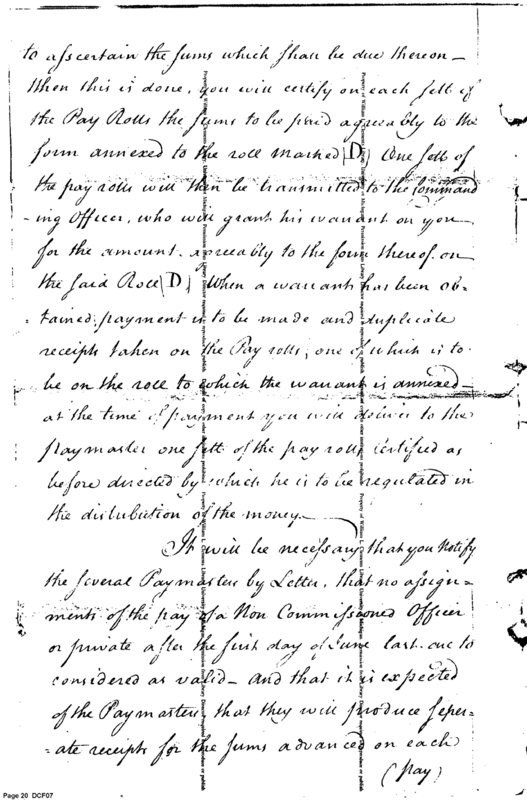 to asscertain the sums which shall be due thereon —
When this is done, you will certify on each sett of
the Pay Rolls the sums to be paid agreeably to the
form annexed to the roll marked (D) One sett of
the pay rolls will then be transmitted to the Command
-ing Officer, who will grant his warrant on you
for the amount agreeably to the form thereof on
the said Roll (D) When a warrant has been ob-
-tained, payment is to be made and duplicate
receipts taken on the Pay rolls, one of which is to
be on the roll to which the warrant is annexed —
at the time of payment you will deliver to the
paymaster one sett of the pay rolls certified as
before directed by which he is to be regulated in
the distribution of the money.—
It will be necessary that you Notify
the several Paymasters by Letter, that no assign-
ments of the pay of a Non Commissioned Officer
or private after the first day of June last are to
considered as valid — and that it is expected
of the Paymasters, that they will produce seper-
-ate receipts for the sums advanced on each
(pay)
Page 20 DCF07